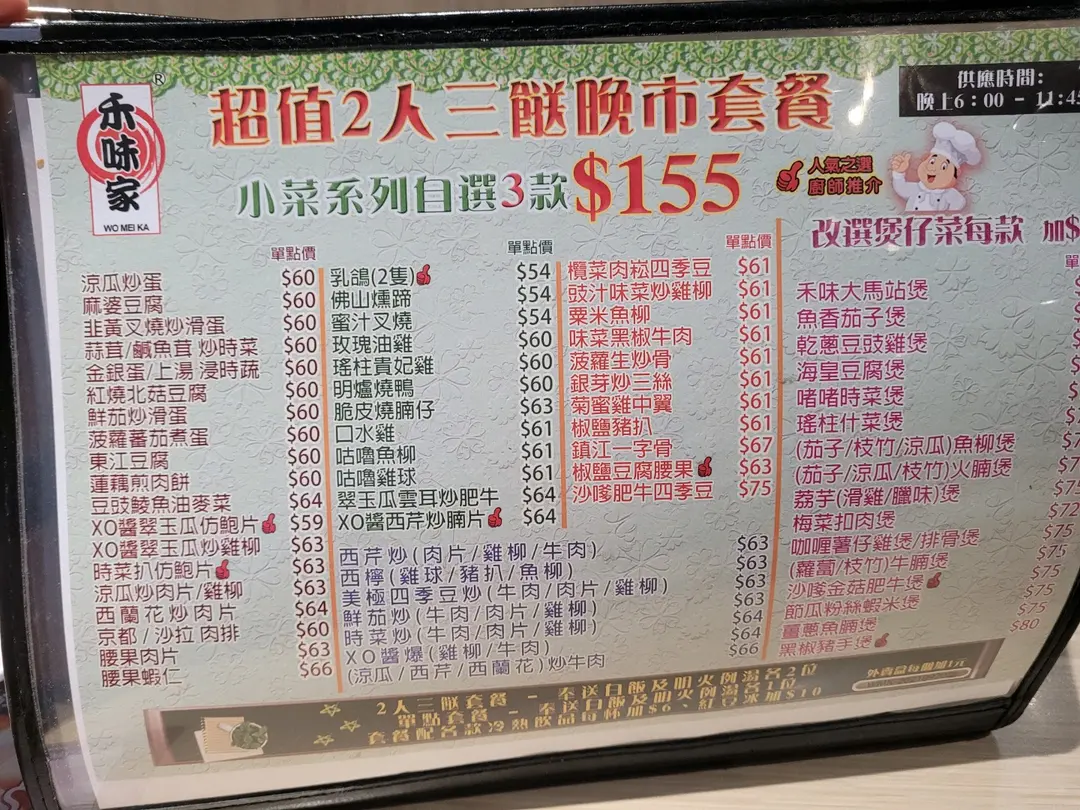 禾味家
WO MEI KA
®
超值2人三餸晚市套餐
供應時間：
晚上6：00 - 11:45
小菜系列自選3款$155
人氣之選
廚師推介
改選煲仔菜每款 加$
單點價
涼瓜炒蛋 $60
麻婆豆腐 $60
韭黃叉燒炒滑蛋 $60
蒜茸/鹹魚茸 炒時菜 $60
金銀蛋/上湯 浸時蔬 $60
紅燒北菇豆腐 $60
鮮茄炒滑蛋 $60
菠蘿蕃茄煮蛋 $60
東江豆腐 $60
蓮藕煎肉餅 $60
豆豉鯪魚油麥菜 $64
XO醬翠玉瓜仿鮑片 $59
XO醬翠玉瓜炒雞柳 $63
時菜扒仿鮑片 $63
涼瓜炒肉片/雞柳 $63
西蘭花炒肉片 $64
京都/沙拉 肉排 $60
腰果肉片 $63
腰果蝦仁 $66
單點價
乳鴿(2隻) $54
佛山燻蹄 $54
蜜汁叉燒 $54
玫瑰油雞 $60
瑤柱貴妃雞 $60
明爐燒鴨 $60
脆皮燒腩仔 $63
口水雞 $61
咕嚕魚柳 $61
咕嚕雞球 $61
翠玉瓜雲耳炒肥牛 $64
XO醬西芹炒腩片 $64
單點價
欖菜肉崧四季豆 $61
豉汁味菜炒雞柳 $61
粟米魚柳 $61
味菜黑椒牛肉 $61
菠蘿生炒骨 $61
銀芽炒三絲 $61
菊蜜雞中翼 $61
椒鹽豬扒 $61
鎮江一字骨 $67
椒鹽豆腐腰果 $63
沙嗲肥牛四季豆 $75
西芹炒(肉片/雞柳/牛肉) $63
西檸(雞球/豬扒/魚柳) $63
美極四季豆炒(牛肉/肉片/雞柳) $63
鮮茄炒(牛肉/肉片/雞柳) $64
時菜炒(牛肉/肉片/雞柳) $64
XO醬爆(雞柳/牛肉) $66
(涼瓜/西芹/西蘭花)炒牛肉
單
禾味大馬站煲
魚香茄子煲
乾蔥豆豉雞煲
海皇豆腐煲
啫啫時菜煲
瑤柱什菜煲
(茄子/枝竹/涼瓜)魚柳煲
(茄子/涼瓜/枝竹)火腩煲
荔芋(滑雞/臘味)煲
梅菜扣肉煲 $72
咖喱薯仔雞煲/排骨煲 $75
(蘿蔔/枝竹)牛腩煲 $75
沙嗲金菇肥牛煲 $75
節瓜粉絲蝦米煲 $75
薑蔥魚腩煲 $75
黑椒豬手煲 $80
2人三餸套餐 - 奉送白飯及明火例湯各2位
單點套餐 - 奉送白飯及明火例湯各1位
套餐配各款冷熱飲品每杯加$6、紅豆冰加$10
外賣盒每個加1元